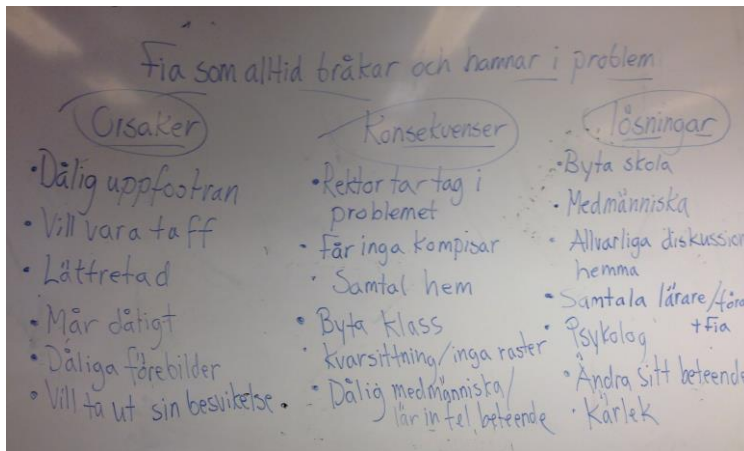 Fia som alltid bråkar och hamnar i problem
Orsaker
• Dålig uppfostran
• Vill vara taff
• Lättretad
• Mår dåligt
• Dåliga förebilder
• Vill ta ut sin besvikelse.
Konsekvenser
• Rektor tar tag i
problemet
• Får inga kompisar
• Samtal hem
• Byta klass
• kvarsittning/inga raster
• Dålig medmänniska/
lär in fel beteende
Lösningar
• Byta skola
• Medmänniska
• Allvarliga diskussion
hemma
• Samtala lärare/föra
+ Fia
• Psykolog
• Ändra sitt beteende
• Kärlek